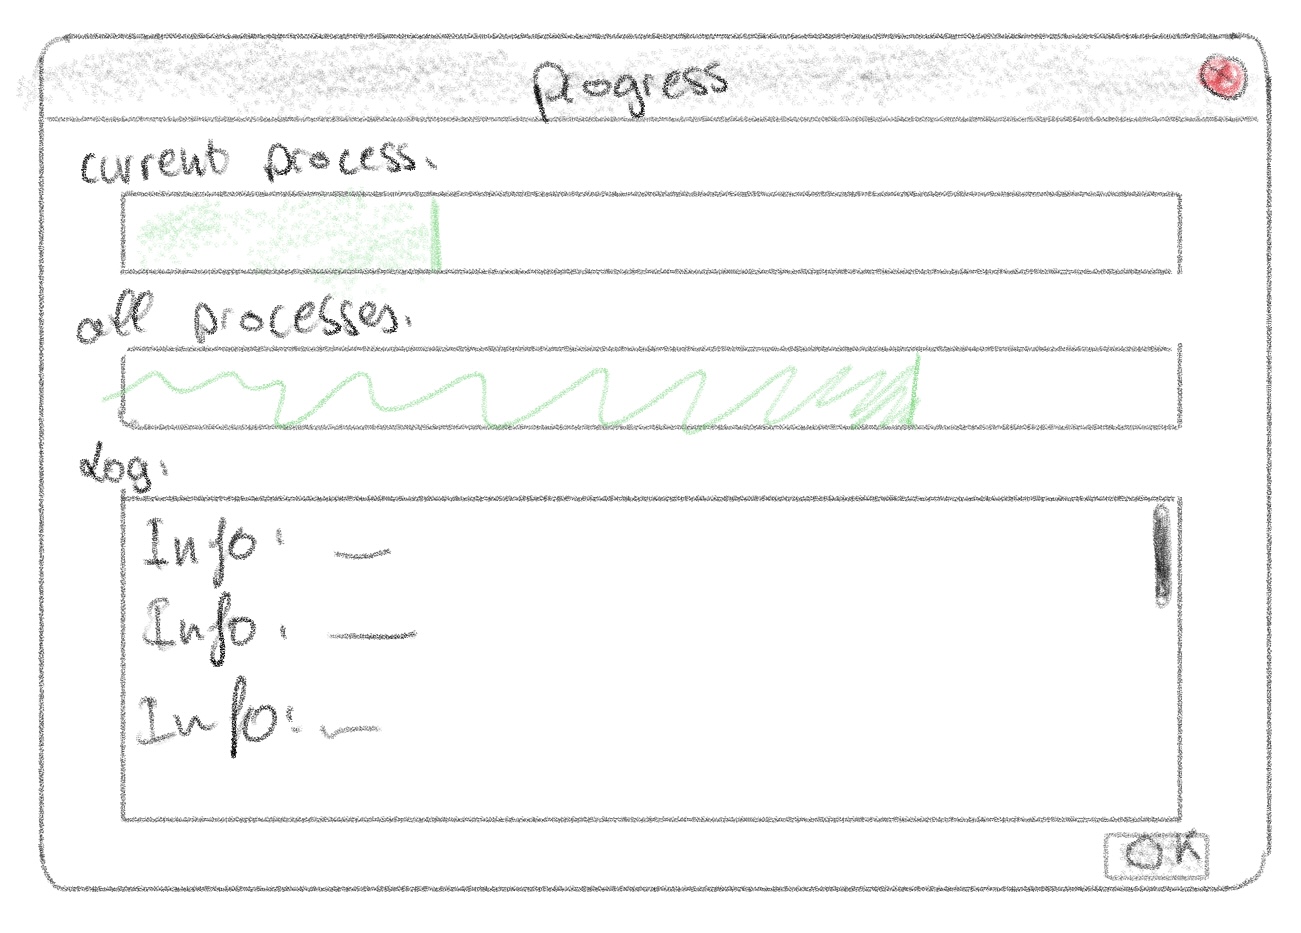 Progress
current process:
all processes:
Log:
Info: —
Info: —
Info: —
OK